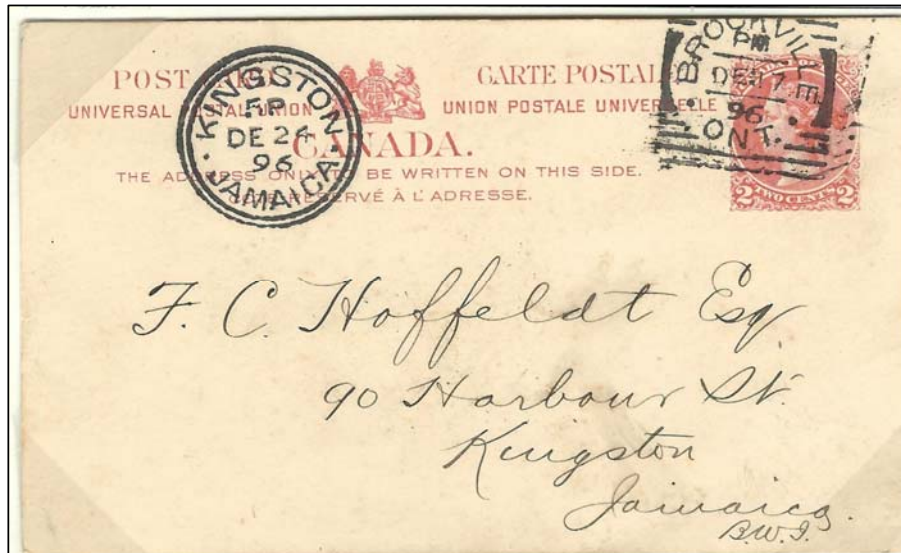 POST CARD CARTE POSTALE
UNIVERSAL POSTAL UNION UNION POSTALE UNIVERSELLE
CANADA.
THE ADDRESS ONLY TO BE WRITTEN ON THIS SIDE.
CÔTÉ RESERVÉ À L'ADRESSE.
KINGSTON
DE 24
96
JAMAICA
BROCKVILLE
PM
DE 17
96
ONT.
2 TWO CENTS 2
F. C. Hoffeldt Esq
90 Harbour St.
Kingston
Jamaica.
B.W.I.